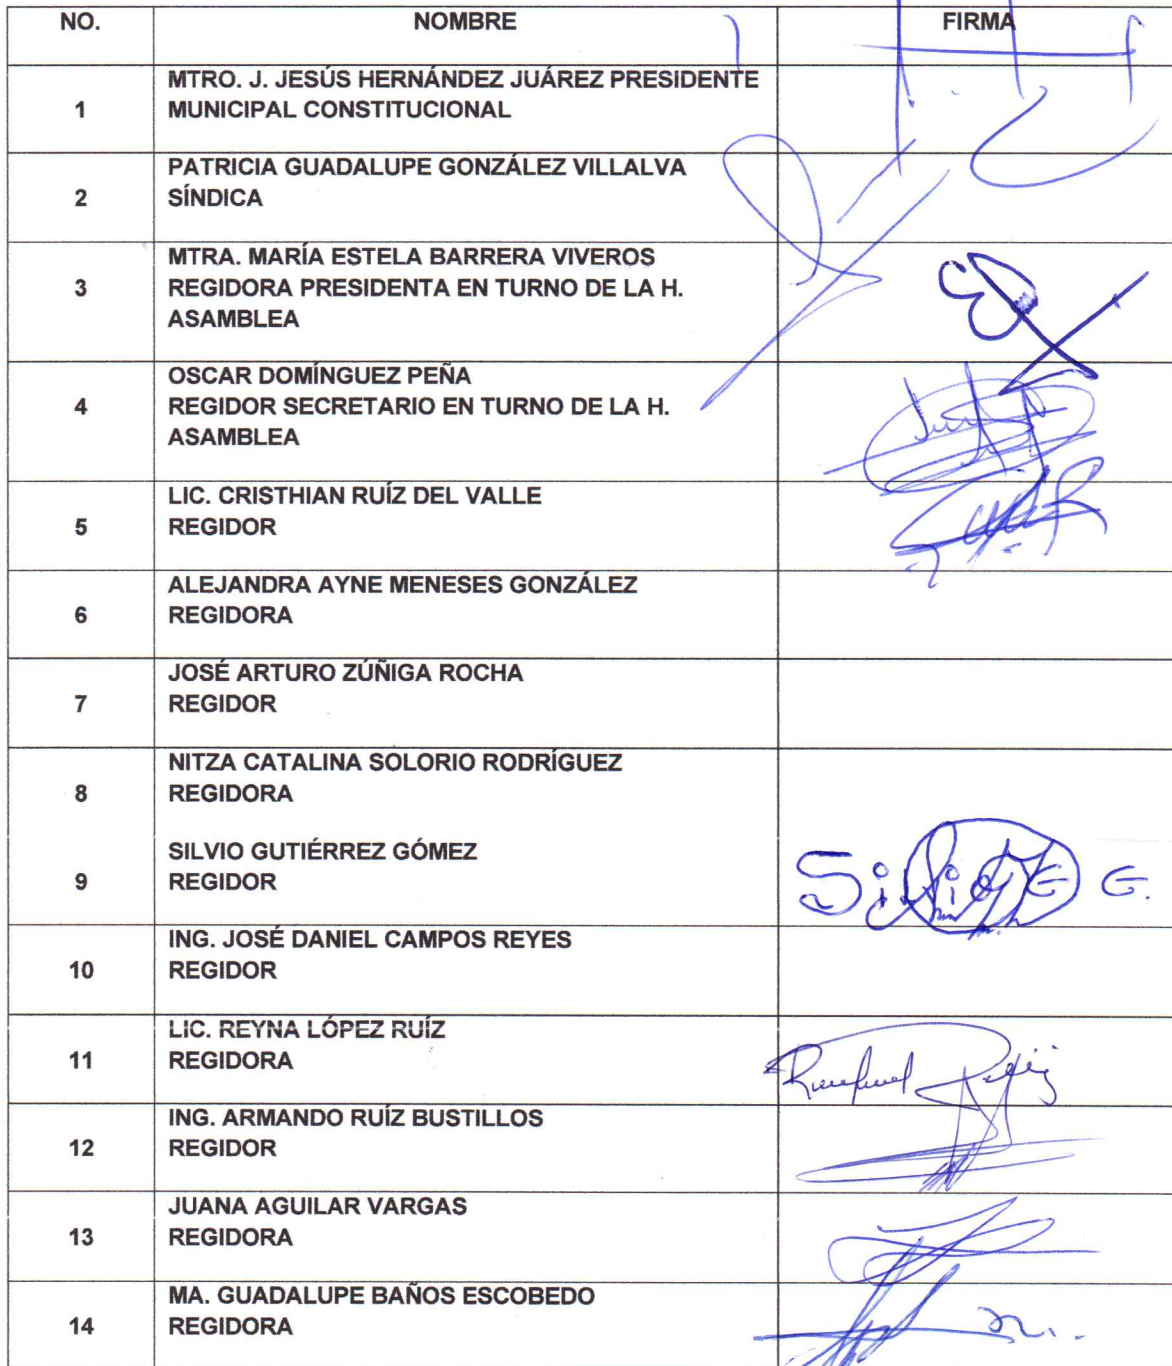 NO. NOMBRE FIRMA
MTRO. J. JESÚS HERNÁNDEZ JUÁREZ PRESIDENTE
1 MUNICIPAL CONSTITUCIONAL
PATRICIA GUADALUPE GONZÁLEZ VILLALVA
2 SÍNDICA
MTRA. MARÍA ESTELA BARRERA VIVEROS
3 REGIDORA PRESIDENTA EN TURNO DE LA H.
ASAMBLEA
OSCAR DOMÍNGUEZ PEÑA
4 REGIDOR SECRETARIO EN TURNO DE LA H.
ASAMBLEA
LIC. CRISTHIAN RUÍZ DEL VALLE
5 REGIDOR
ALEJANDRA AYNE MENESES GONZÁLEZ
6 REGIDORA
JOSÉ ARTURO ZÚÑIGA ROCHA
7 REGIDOR
NITZA CATALINA SOLORIO RODRÍGUEZ
8 REGIDORA
SILVIO GUTIÉRREZ GÓMEZ
9 REGIDOR Silvio G G.
ING. JOSÉ DANIEL CAMPOS REYES
10 REGIDOR
LIC. REYNA LÓPEZ RUÍZ
11 REGIDORA
ING. ARMANDO RUÍZ BUSTILLOS
12 REGIDOR
JUANA AGUILAR VARGAS
13 REGIDORA
MA. GUADALUPE BAÑOS ESCOBEDO
14 REGIDORA